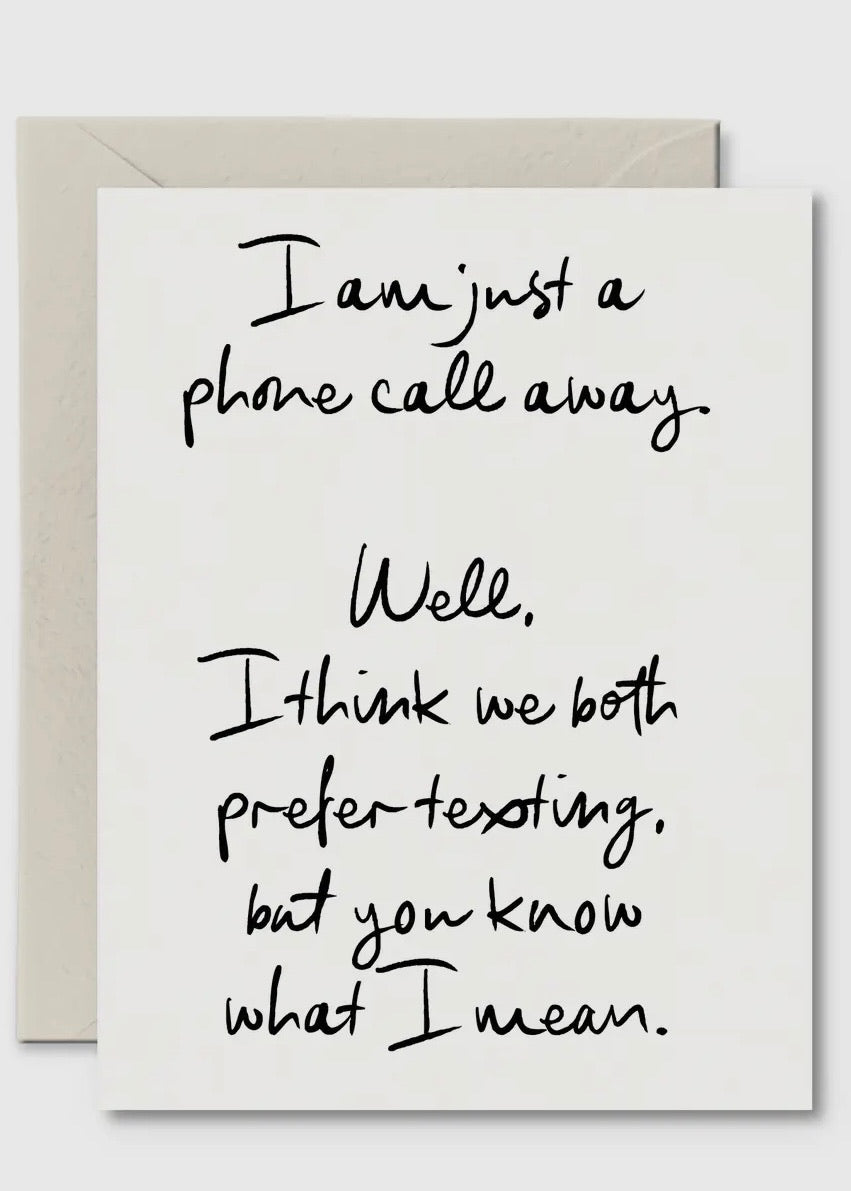 I am just a
phone call away.
Well,
I think we both
prefer texting,
but you know
what I mean.